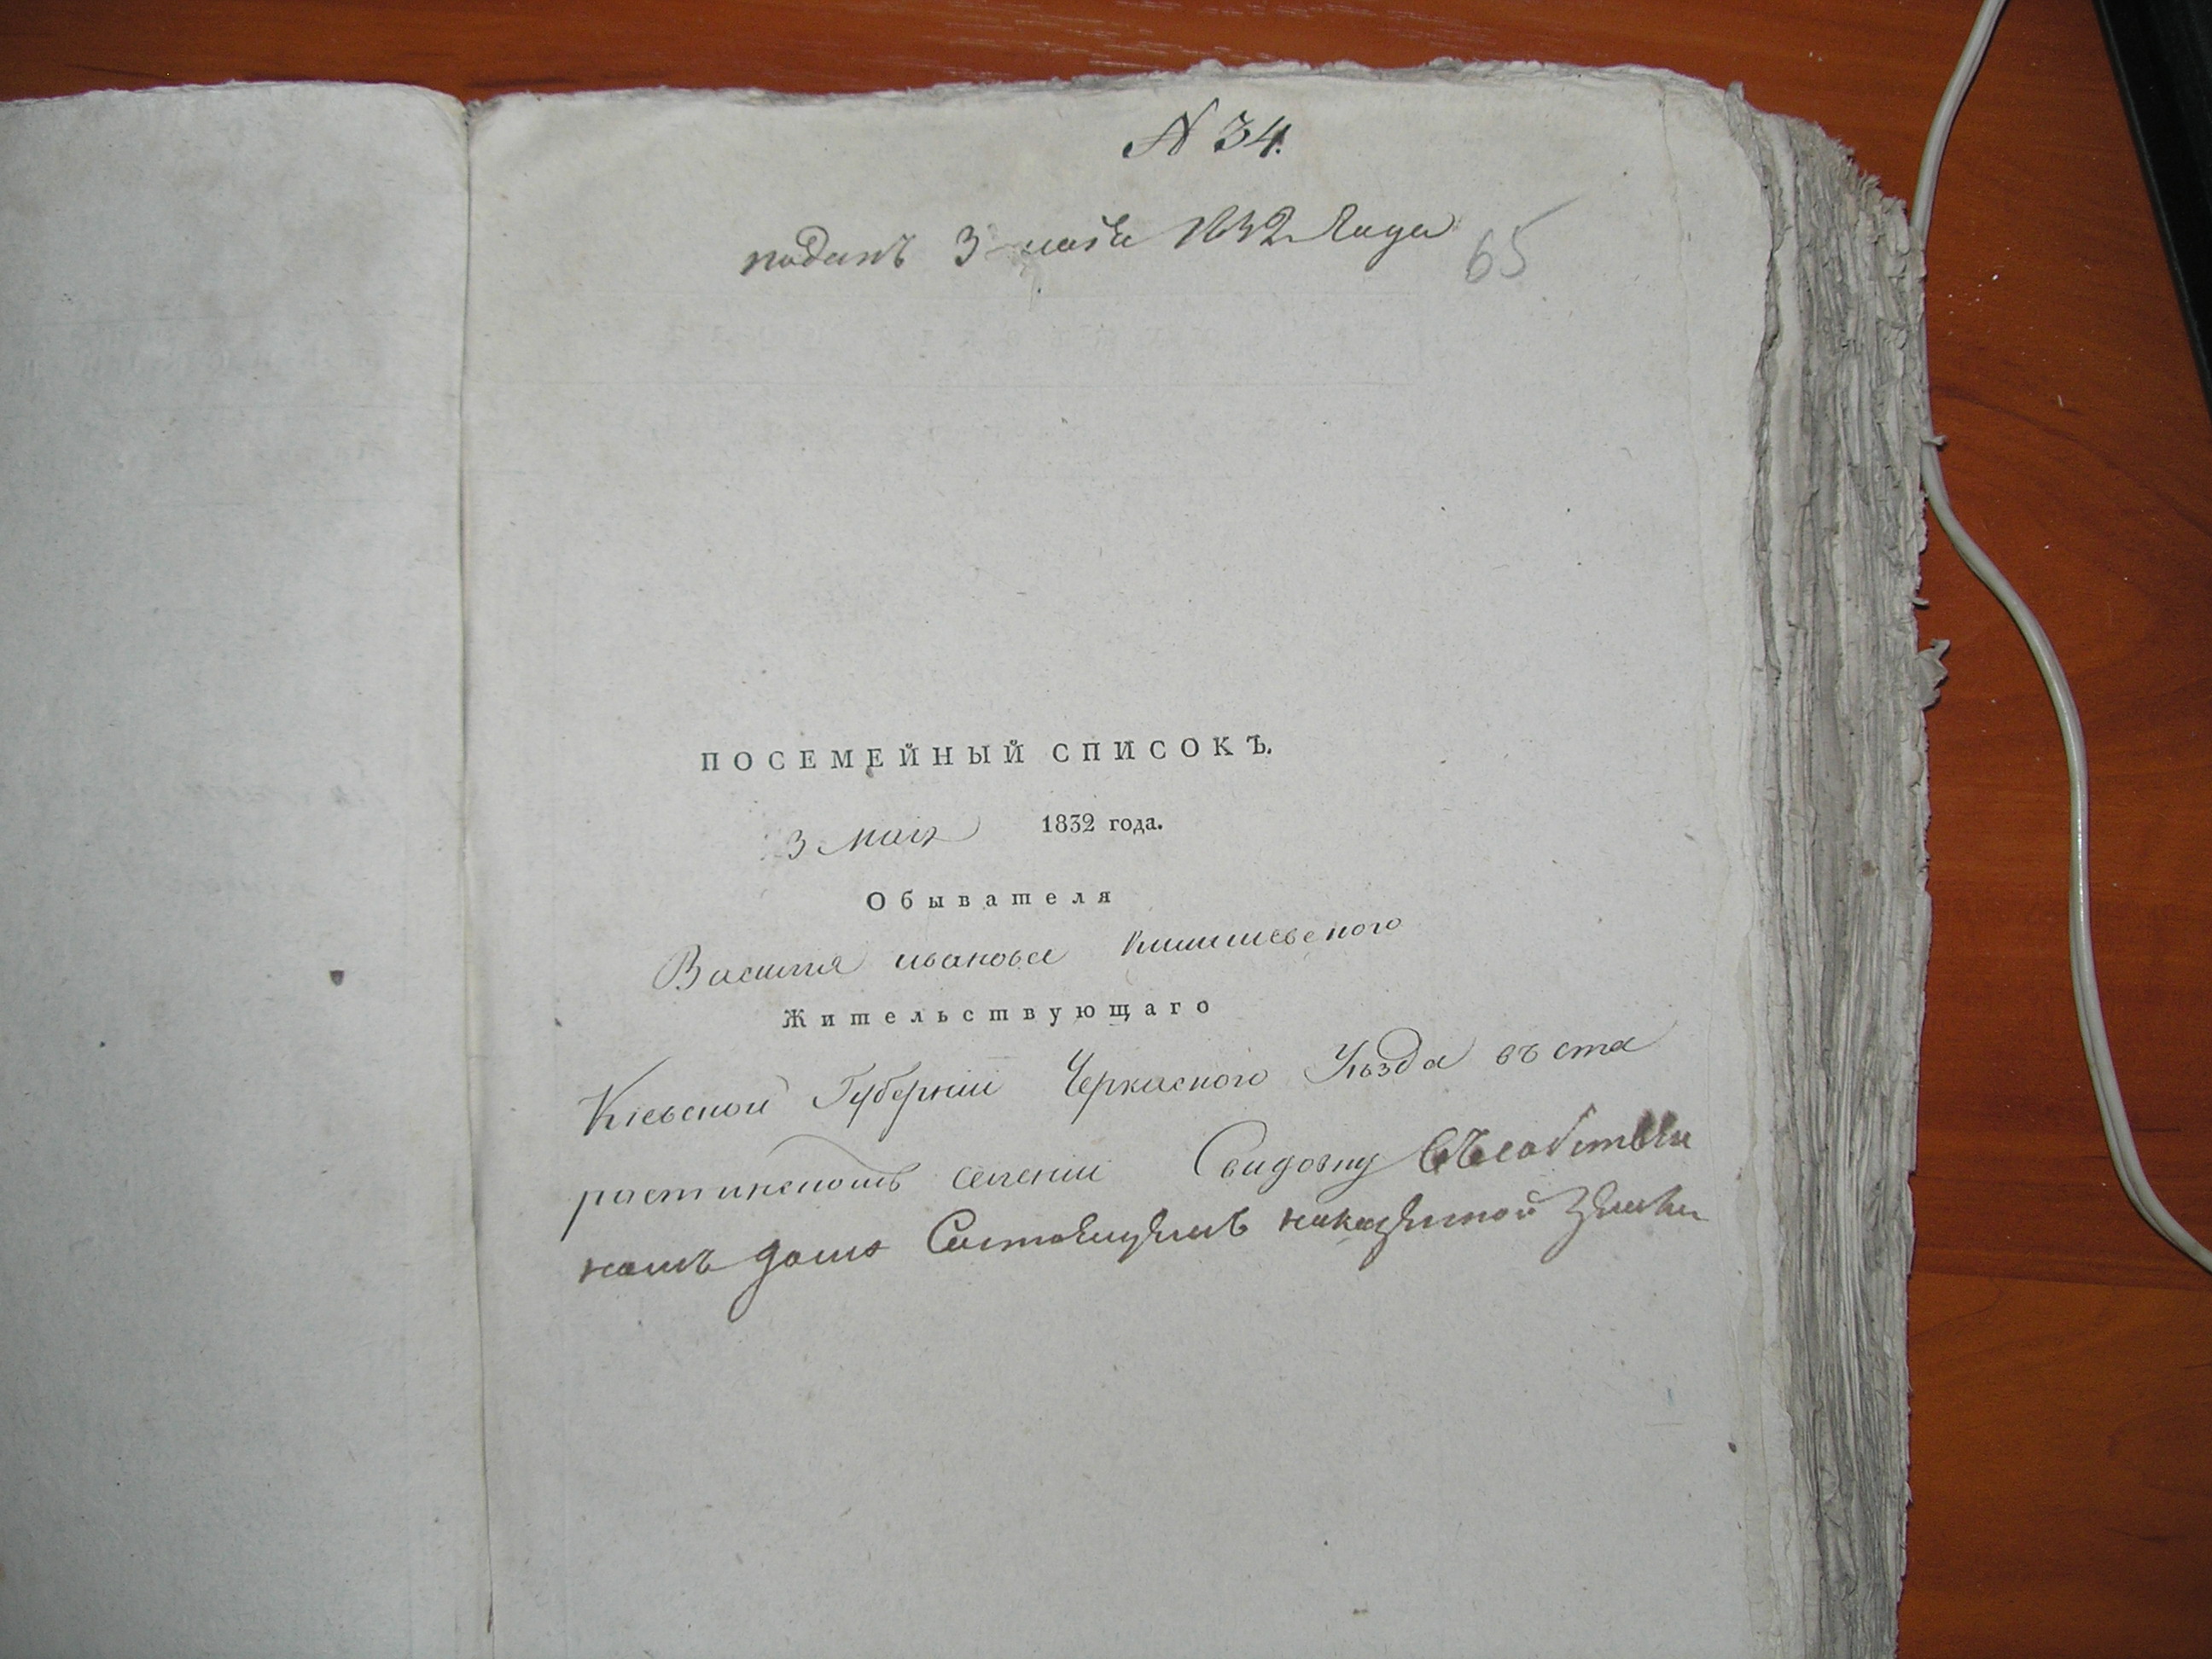 N 34.
поданъ 3 маія 1832 Года
65
ПОСЕМЕЙНЫЙ СПИСОКЪ.
3 Маія 1832 года.
Обывателя
Василія иванова
Жительствующаго
Кіевской Губерніи Черкаского Уѣзда въ ста
ростинскомъ селеніи Свидовку въ собствен
номъ доме Состоящемъ на казенной Земли